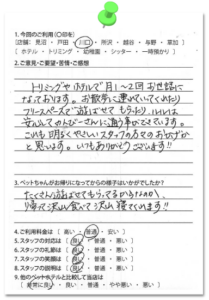 1. 今回のご利用（○印を）
［店舗： 見沼 ・ 戸田 ・ 川口 ・ 所沢 ・ 越谷 ・ 与野 ・ 草加 ］
（ ホテル ・ トリミング ・ 幼稚園 ・ シッター ・ 一時預かり ）
2. ご意見・ご要望・苦情・ご感想
トリミングやホテルで月1〜2回お世話に
なっております。お散歩に連れていてくれたり
フリースペースで遊ばせてもらったり、いつも
安心してのびーさんに通う事ができています。
これも明るくやさしいスタッフの方々のおかげかな
と思います。いつもありがとうございます!!
3. ペットちゃんがお帰りになってからの様子はいかがでしたか？
たくさん遊ばせてもらってるからなのか、
帰って沢山食べて沢山寝てくれます!!
4. ご利用料金は ［ 高い ・ 普通 ・ 安い ］
5. スタッフの対応は ［ 良い ・ 普通 ・ 悪い ］
6. スタッフの礼節は ［ 良い ・ 普通 ・ 悪い ］
7. スタッフの笑顔は ［ 良い ・ 普通 ・ 悪い ］
8. スタッフの説明は ［ 良い ・ 普通 ・ 悪い ］
9. 他のペットホテルと比較して当店は
［ 非常に良い ・ 良い ・ 普通 ・ やや悪い ・ 悪い ］